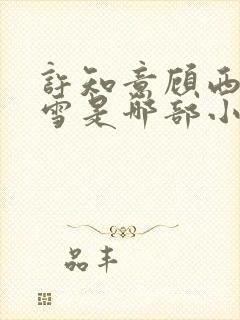 許知意顾西
雪是那部小
品丰